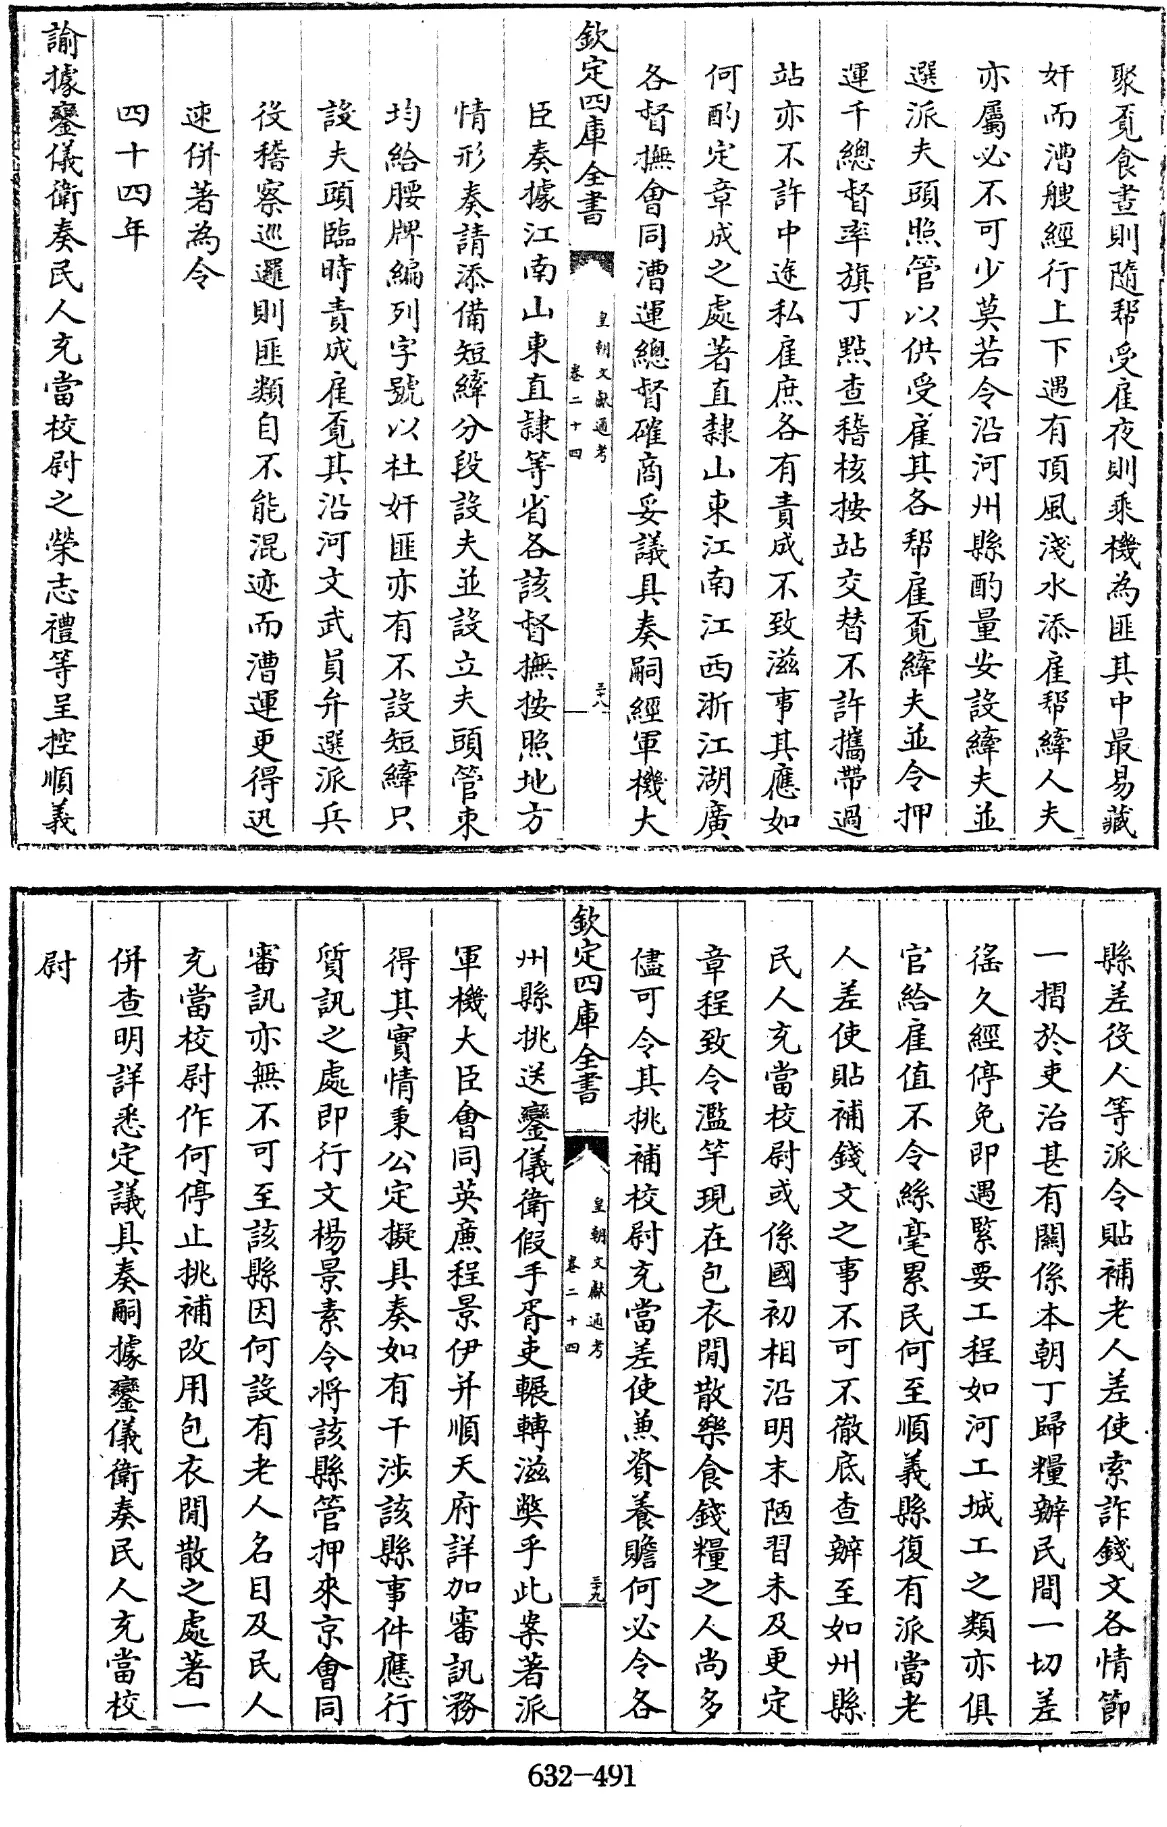 聚覓食晝則隨帮受雇夜則乘機為匪其中最易藏
奸而漕艘經行上下遇有頂風淺水添雇帮縴人夫
亦屬必不可少莫若令沿河州縣酌量安設縴夫並
選派夫頭照管以供受雇其各帮雇覓縴夫並令押
運千總督率旗丁點查稽核按站交替不許攜帶過
站亦不許中途私雇庶各有責成不致滋事其應如
何酌定章成之處著直隸山東江南江西浙江湖廣
各督撫會同漕運總督確商妥議具奏嗣經軍機大
欽定四庫全書
皇朝文獻通考
卷二十四
三十八
臣奏據江南山東直隸等省各該督撫按照地方
情形奏請添備短縴分段設夫並設立夫頭管束
均給腰牌編列字號以杜奸匪亦有不設短縴只
設夫頭臨時責成雇覓其沿河文武員弁選派兵
役稽察巡邏則匪類自不能混迹而漕運更得迅
速併著為令
四十四年
諭據鑾儀衛奏民人充當校尉之榮志禮等呈控順義
縣差役人等派令貼補老人差使索詐錢文各情節
一摺於吏治甚有關係本朝丁歸糧辦民間一切差
徭久經停免即遇緊要工程如河工城工之類亦俱
官給雇值不令絲毫累民何至順義縣復有派當老
人差使貼補錢文之事不可不徹底查辦至如州縣
民人充當校尉或係國初相沿明末陋習未及更定
章程致令濫竽現在包衣閒散樂食錢糧之人尚多
儘可令其挑補校尉充當差使兼資養贍何必令各
欽定四庫全書
皇朝文獻通考
卷二十四
三十九
州縣挑送鑾儀衛假手胥吏輾轉滋獘乎此案著派
軍機大臣會同英廉程景伊并順天府詳加審訊務
得其實情秉公定擬具奏如有干涉該縣事件應行
質訊之處即行文楊景素令將該縣管押來京會同
審訊亦無不可至該縣因何設有老人名目及民人
充當校尉作何停止挑補改用包衣閒散之處著一
併查明詳悉定議具奏嗣據鑾儀衛奏民人充當校
尉
632-491